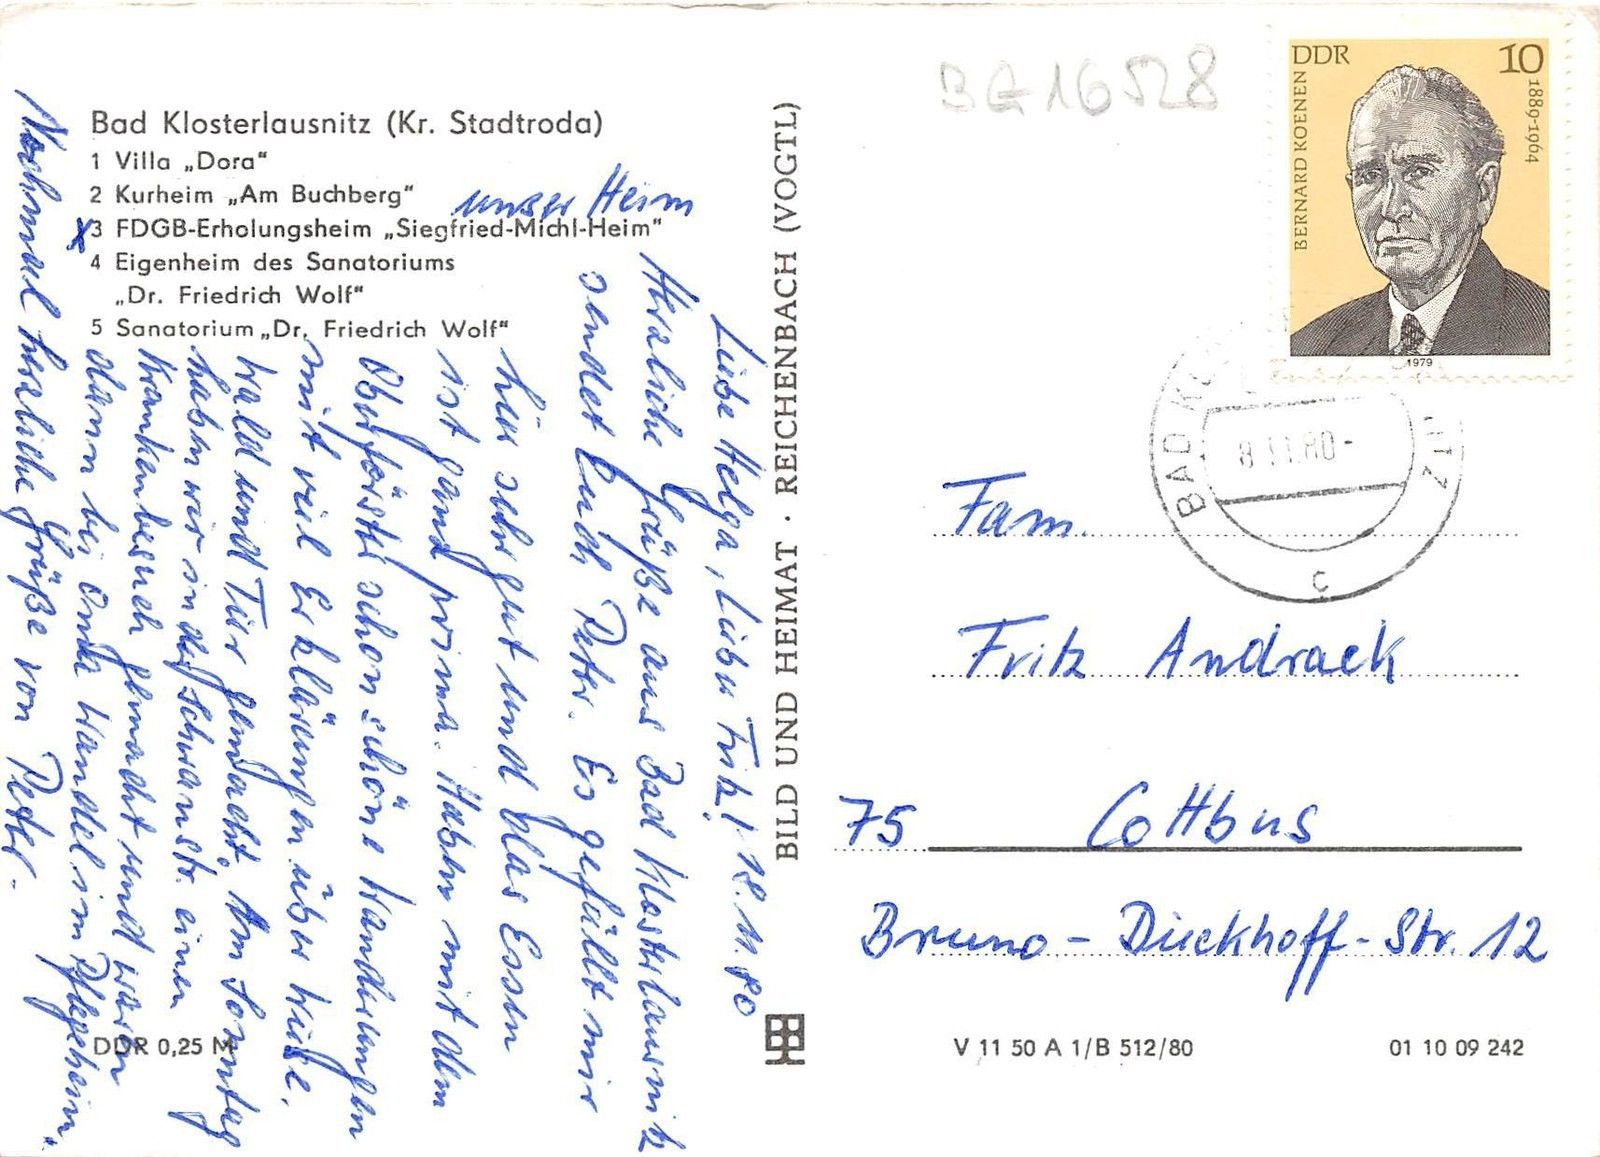 Bad Klosterlausnitz (Kr. Stadtroda)
1 Villa „Dora“
2 Kurheim „Am Buchberg“
unser Heim
x3 FDGB-Erholungsheim „Siegfried-Michl-Heim“
4 Eigenheim des Sanatoriums
„Dr. Friedrich Wolf“
5 Sanatorium „Dr. Friedrich Wolf“
Liebe Helga, Lieber Fritz! 18.11.80
Herzliche Grüße aus Bad Klosterlausnitz
sendet Euch Peter. Es gefällt mir
hier sehr gut und das Essen
ist ganz prima. Haben mit dem
Oberförster schon schöne Wanderungen
mit viel Erklärungen über Wiese,
Wald und Tier gemacht. Am Sonntag
haben wir in der Schwanstr. einen
Krankenbesuch gemacht und waren
dann bei Wandel im Pflegeheim.
Nochmal herzliche Grüße von Peter.
DDR 0,25 M
BILD UND HEIMAT · REICHENBACH (VOGTL)
BG 16528
DDR 10
BERNARD KOENEN
1889-1964
1979
BAD
8.11.80-
C
Fam.
Fritz Andrack
75 Cottbus
Bruno-Dieckhoff-Str. 12
V 11 50 A 1/B 512/80
01 10 09 242